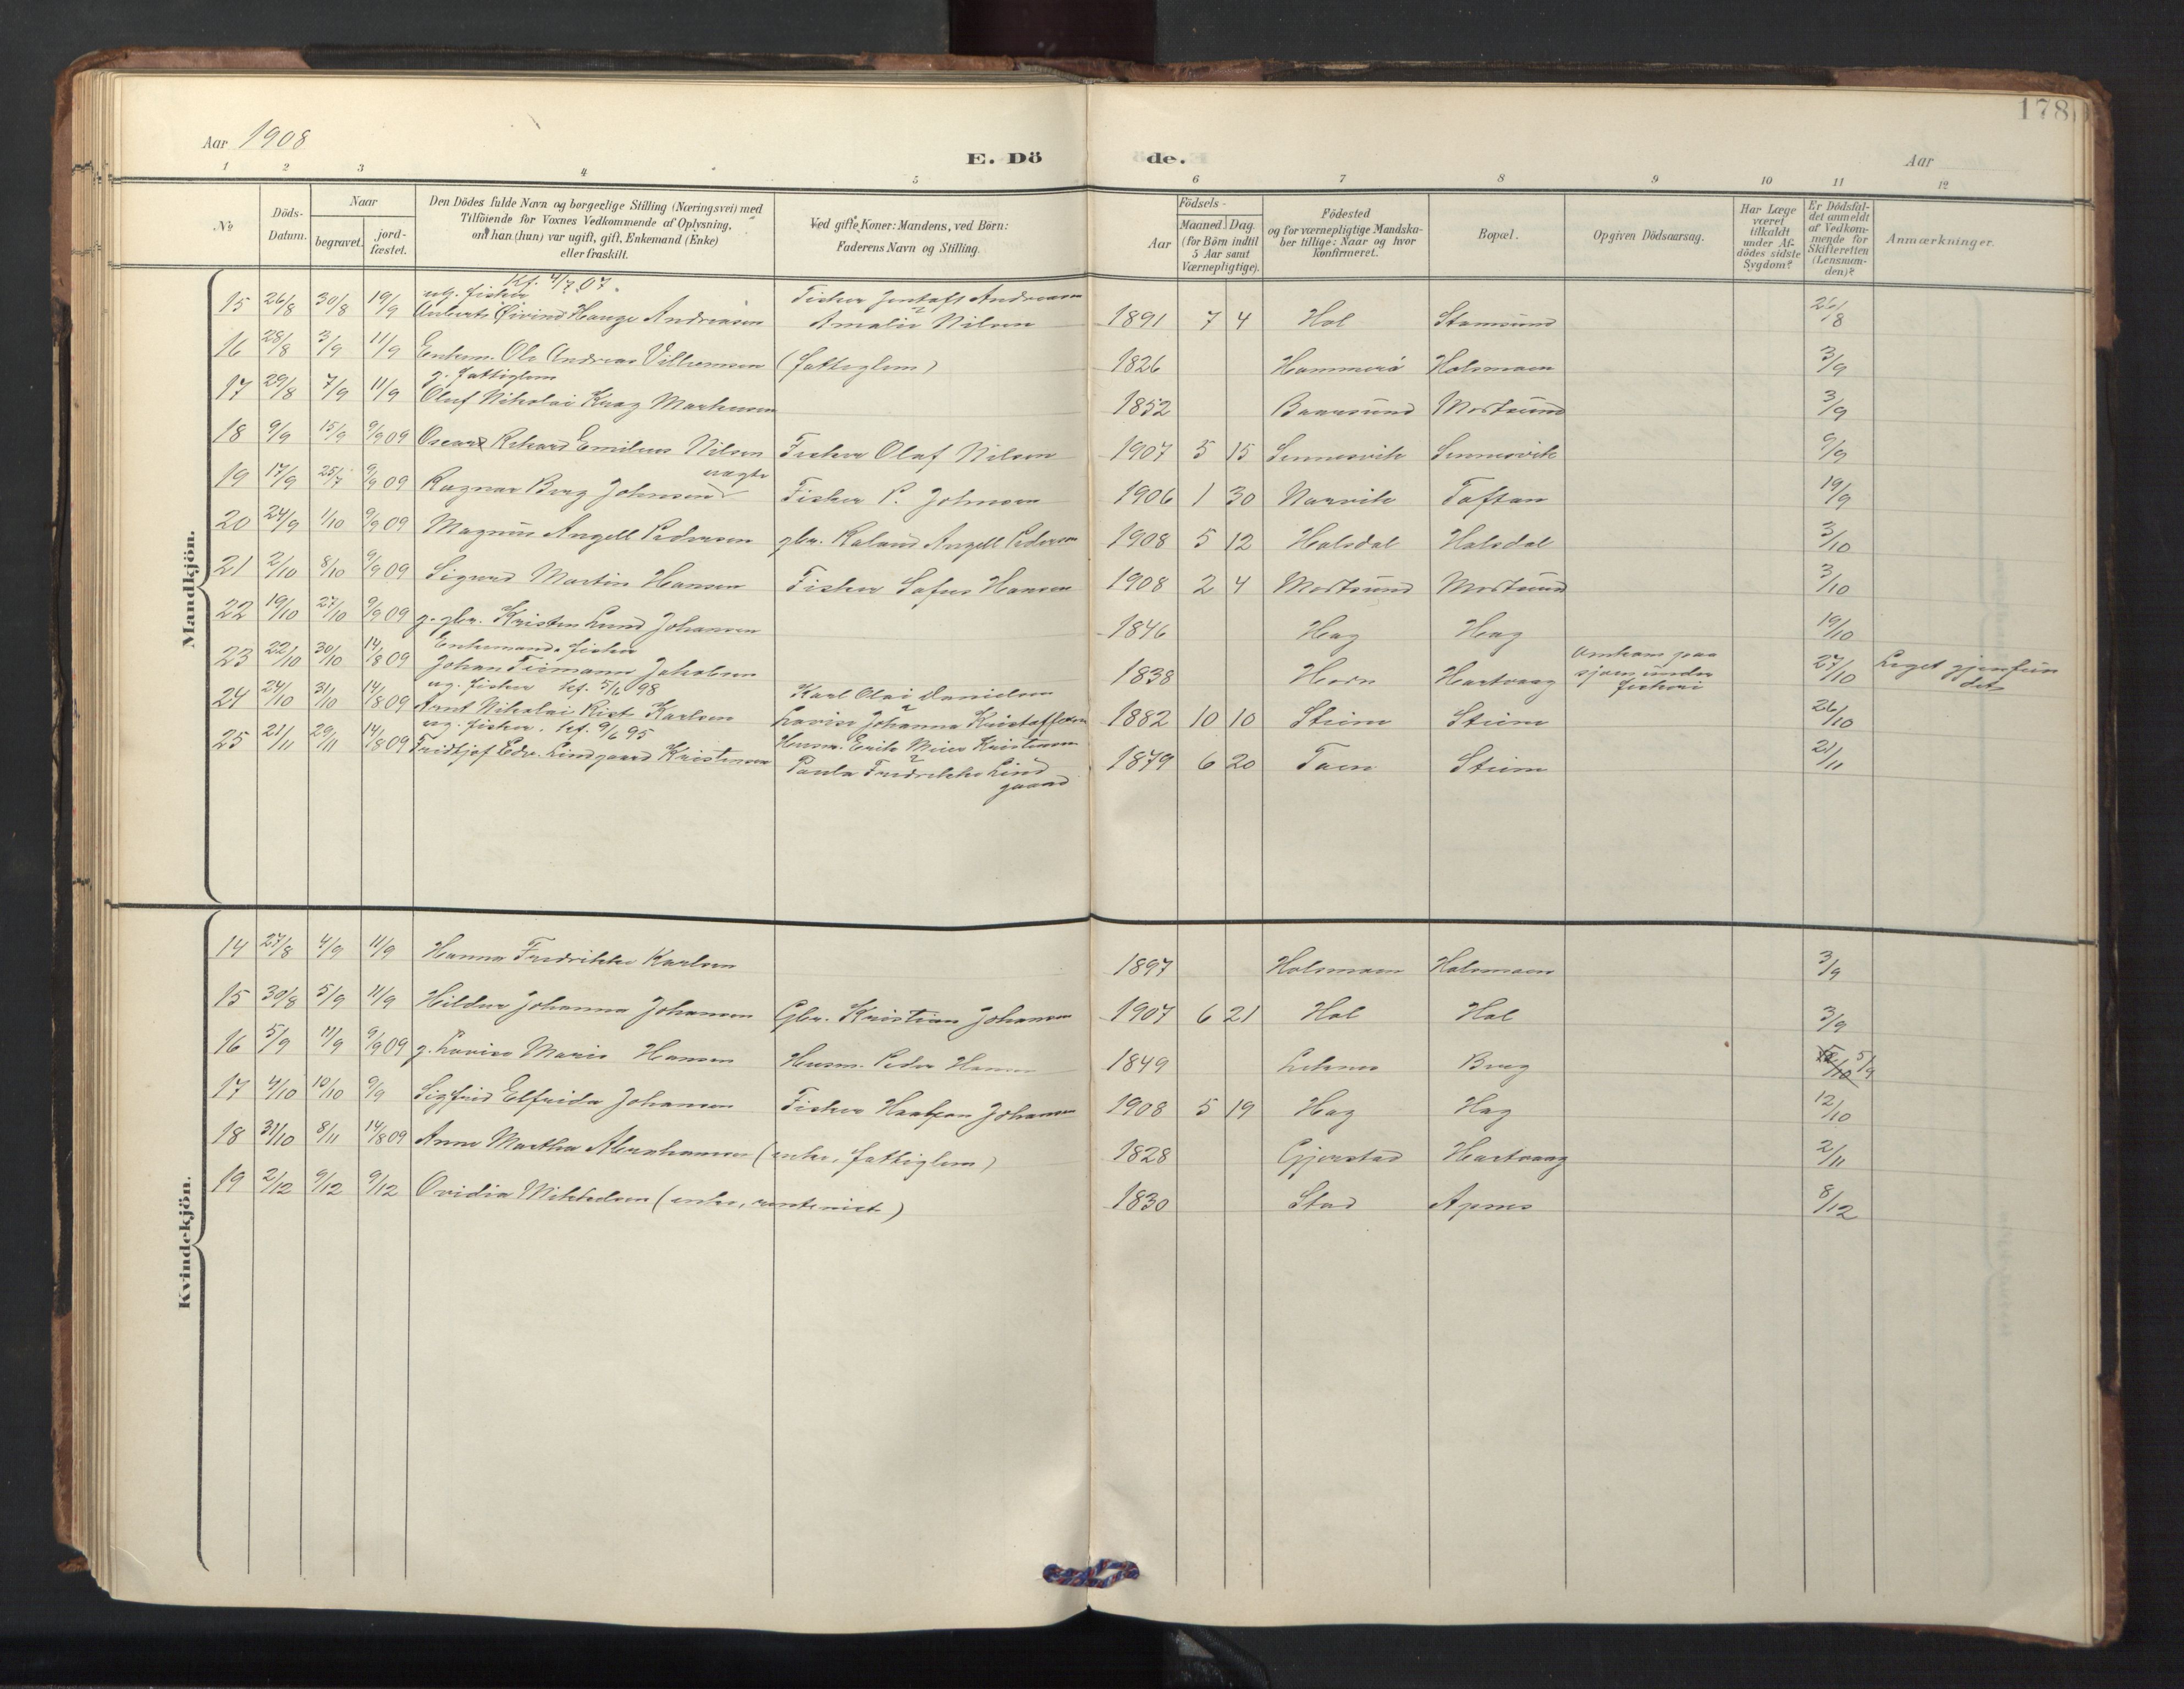 178
Aar 1908
E. Dö de.
Aar
1 2 3 4 5 6 7 8 9 10 11 12
№
Döds-
Datum.
Naar
begravet.
jord-
fæstet.
Den Dödes fulde Navn og borgerlige Stilling (Næringsvei) med
Tilföiende for Voxnes Vedkommende af Oplysning,
om han (hun) var ugift, gift, Enkemand (Enke)
eller fraskilt.
Ved gifte Koner: Mandens, ved Börn:
Faderens Navn og Stilling.
Födsels-
Aar
Maaned Dag.
(for Börn indtil
5 Aar samt
Værnepligtige).
Födested
og for værnepligtige Mandska-
ber tillige: Naar og hvor
konfirmeret.
Bopæl.
Opgiven Dödsaarsag.
Har Læge
været
tilkaldt
under Af-
dödes sidste
Sygdom?
Er Dödsfal-
det anmeldt
af Vedkom-
mende for
Skifteretten
(Lensman-
den)?
Anmærkninger.
Mandkjön.
Kf. 7/7 07.
ug. fisker Fisker Gustaft Andreasen
15 26/8 30/8 19/9 Øivind Hauge Andreasen Amalie Nilsen 1891 7 4 Hol Stamsund 26/8
16 28/8 3/9 11/9 Enkem. Ole Andreas Villumsen (fattiglem) 1826 Hammerø Holsmoen 3/9
g. fattiglem
17 29/8 7/9 11/9 Oluf Nikolai Krag Markussen 1852 Mortsund 3/9
18 9/9 15/9 9/9 09 Oscar Rikard Emilius Nilsen Fisker Olaf Nilsen 1907 5 15 Sennesvik Sennesvik 9/9
uægte
19 17/9 25/7 9/9 09 Ragnar Berg Johnsen Fisker P. Johnsen 1906 1 30 Narvik Toftan 19/9
20 24/9 1/10 9/9 09 Magnus Angell Pedersen gbr. Roland Angell Pedersen 1908 5 12 Holsdal Holsdal 3/10
21 2/10 8/10 9/9 09 Sigurd Martin Hansen Fisker Sofus Hansen 1908 2 4 Mortsund Mortsund 3/10
22 19/10 27/10 9/9 09 g. gbr. Kristen Lund Johansen 1846 Hag Hag 19/10
Enkemand. fisker
23 22/10 30/10 14/8 09 Johan Tiemann Jakobsen 1838 Horn Hartvaag Omkom paa
sjøen under
fiskeri 27/10 Liget gjenfun
det
ug. fisker kf. 5/6 98 Karl Olai Danielsen
24 24/10 31/10 14/8 09 Arnt Nikolai Rist Karlsen Lovise Johanna Kristoffersen 1882 10 10 Steine Steine 26/10
ug. fisker. kf. 9/6 95 Husm. Erik Meier Kristensen
25 21/11 29/11 14/8 09 Fridtjof Edv. Lindgaard Kristensen Paula Fredrikke Lind
gaard 1879 6 20 Taen Steine 21/11
Kvindekjön.
14 27/8 4/9 11/9 Hanna Fredrikke Karlsen 1897 Holsmoen Holsmoen 3/9
15 30/8 5/9 11/9 Hildur Johanna Johansen Gbr. Kristian Johansen 1907 6 21 Hol Hol 3/9
16 5/9 11/9 9/9 09 g. Lovise Marie Hansen Husm. Peder Hansen 1849 Leknes Berg 5/9
17 4/10 10/10 9/9 Sigfrid Elfrida Johansen Fisker Haakon Johansen 1908 5 19 Hag Hag 12/10
18 31/10 8/11 14/8 09 Anne Martha Abrahamsen (enke, fattiglem) 1828 Gjerstad Hartvaag 2/11
19 2/12 9/12 9/12 Ovidia Mikkelsen (enke, rentenist) 1830 Stad Apnes 8/12